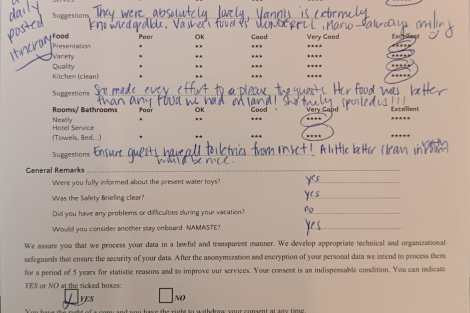 daily
posted
itinerary
Suggestions They were absolutely lovely, Vangelis is extremely
knowledgable. Vasilies food is wonderful, Mario always smiling
Food Poor OK Good Very Good Excellent
Presentation * ** *** **** *****
Variety * ** *** **** *****
Quality * ** *** **** *****
Kitchen (clean) * ** *** **** *****
Suggestions She made every effort to please the guests. Her food was better
than any food we had on land! She truly spoiled us!!!
Rooms/ Bathrooms Poor OK Good Very Good Excellent
Neatly * ** *** **** *****
Hotel Service
(Towels, Bed,..) * ** *** **** *****
Suggestions Ensure guests have all toiletries from onset! A little better clean in room
would be nice.
General Remarks
Were you fully informed about the present water toys? yes
Was the Safety Briefing clear? yes
Did you have any problems or difficulties during your vacation? no
Would you consider another stay onboard NAMASTE? yes
We assure you that we process your data in a lawful and transparent manner. We develop appropriate technical and organizational
safeguards that ensure the security of your data. After the anonymization and encryption of your personal data we intend to process them
for a period of 5 years for statistic reasons and to improve our services. Your consent is an indispensable condition. You can indicate
YES or NO at the ticked boxes:
YES NO
You have the right of a copy and you have the right to withdraw your consent at any time.